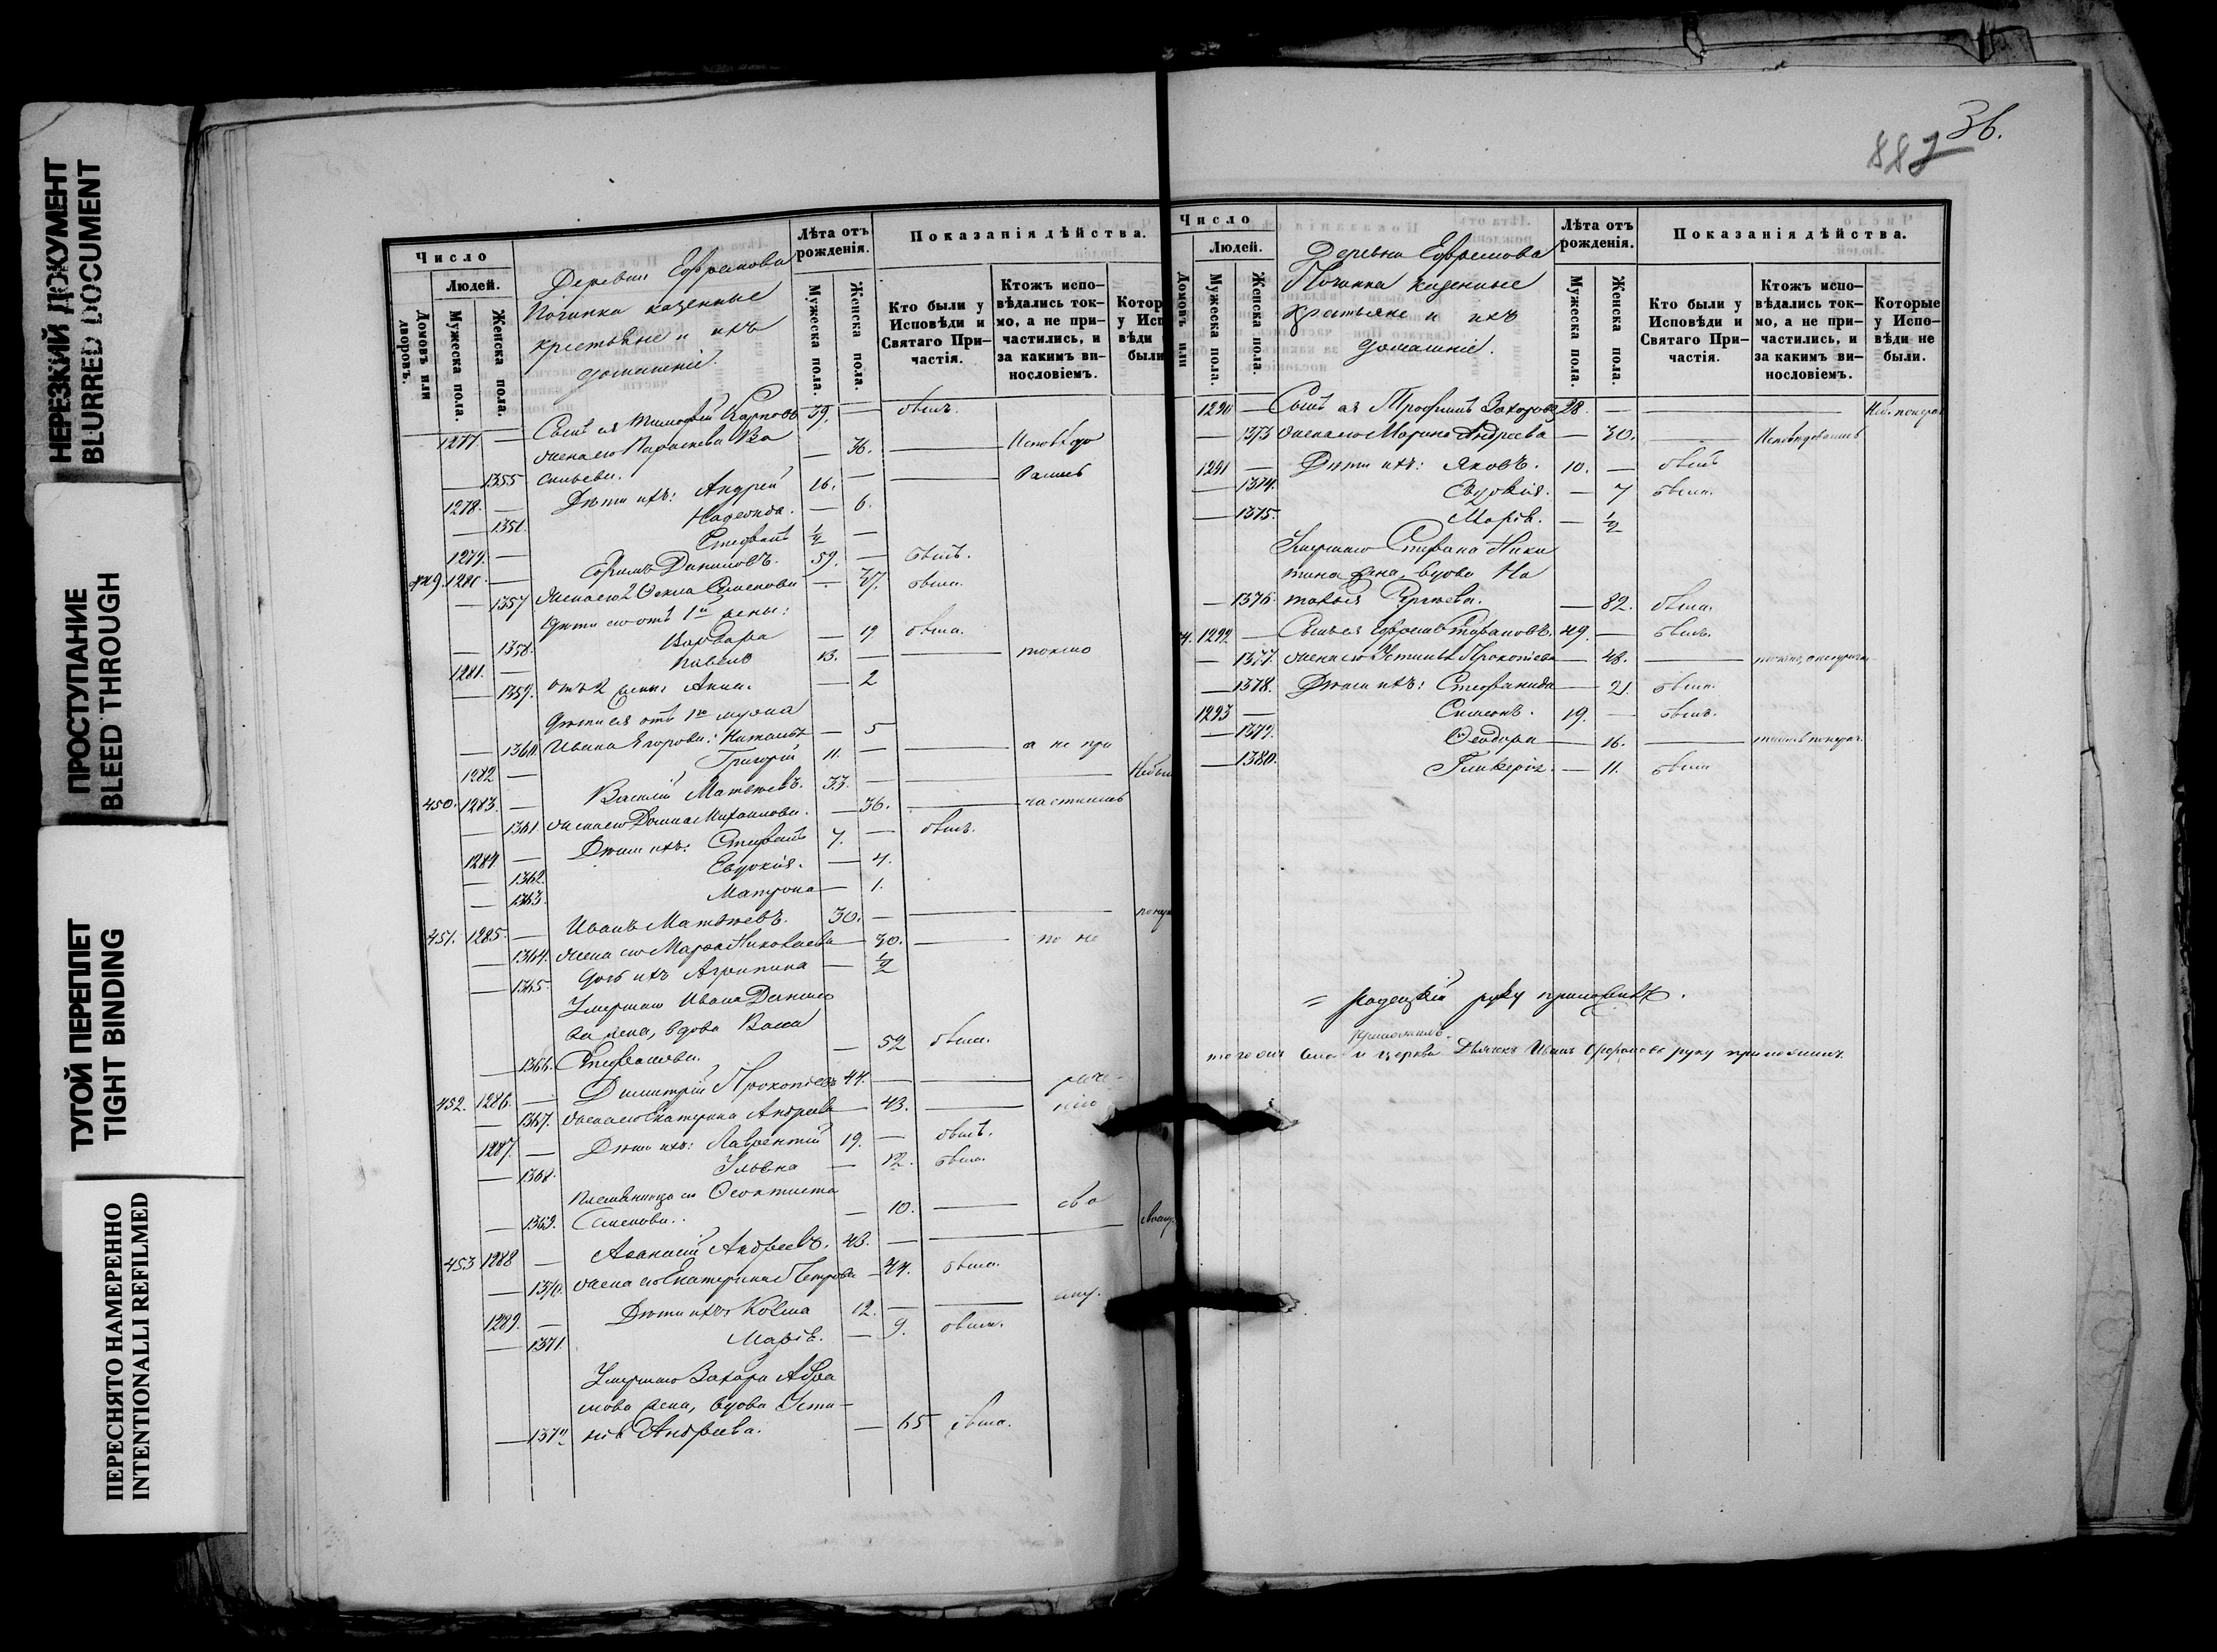 НЕРЕЗКИЙ ДОКУМЕНТ
BLURRED DOCUMENT
ПРОСТУПАНИЕ
BLEED THROUGH
ТУГОЙ ПЕРЕПЛЕТ
TIGHT BINDING
ПЕРЕСНЯТО НАМЕРЕННО
INTENTIONALLI REFILMED
Число
Людей.
Домовъ или дворовъ.
Мужеска пола.
Женска пола.
Деревни Ефремова
Починка казенные
крестьяне и ихъ
домашніе
Лѣта отъ рожденія.
Мужеска пола.
Женска пола.
Показанія дѣйства.
Кто были у Исповѣди и Святаго При-частія.
Ктожъ испо-вѣдались ток-мо, а не при-частились, и за какимъ ви-нословіемъ.
Котор
у Исп
вѣди
были
1277. — Сынъ ея Тимофей Карповъ 39. — былъ.
жена его Параскева Ва
— 1355 сильева. — 36. — Исповѣдо
1278. — Дѣти ихъ: Андрей 16. — — вались
— 1356. Надежда. — 6.
1279. — Стефанъ ½ —
449. 1280. — Ефимъ Даниловъ. 59. — былъ.
— 1357 жена его 2 Фекла Семенова — 37. была.
дѣти его отъ 1й жены:
— 1358. Варвара — 19 была.
1281. — Павелъ 13. — — токмо
— 1359. отъ 2 жены Анна. — 2
дѣти ея отъ 1го мужа
— 1360. Ивана Егорова: Наталья — 5
1282 — Григорій 11. — — а не при
450. 1283. — Василій Матвѣевъ. 33. — — Небы
— 1361 жена его Домна Михаилова. — 36. — частились
1284 — Дѣти ихъ: Стефанъ 7. — былъ.
— 1362. Евдокія. — 4.
— 1363. Матрона — 1.
451. 1285. — Иванъ Матвѣевъ. 30. — —
— 1364. жена его Марѳа Николаева — 30. — по не
— 1365. дочь ихъ Агрипина — ½
Умершаго Ивана Данило
ва жена, вдова Васса
— 1366. Стефанова. — 52 была.
452. 1286. — Димитрій Прокопіевъ 44. — — раче-
— 1367. жена его Екатерина Андреева — 43. — нію
1287. — Дѣти ихъ: Лаврентій 19. — былъ.
— 1368. Ульяна — 12. была.
племянница его Феоктиста
— 1369. Семенова. — 10. — сво
453 1288 — Аѳанасій Андреевъ. 43. — —
— 1370. жена его Екатерина Петрова — 44. была.
1289. — Дѣти ихъ: Козма 12. — — ему.
— 1371. Марія. — 9. была.
Умершаго Захара Абра
мова жена, вдова Усти-
— 1372. нія Андреева. — 65 была.
36.
882
Число
Людей.
Домовъ или
Мужеска пола.
Женска пола.
Деревни Ефремова
Починка казенные
крестьяне и ихъ
домашніе.
Лѣта отъ рожденія.
Мужеска пола.
Женска пола.
Показанія дѣйства.
Кто были у Исповѣди и Святаго При-частія.
Ктожъ испо-вѣдались ток-мо, а не при-частились, и за какимъ ви-нословіемъ.
Которые у Испо-вѣди не были.
1290 — Сынъ ея Трофимъ Захаровъ 28. — —
— 1373 жена его Марина Андреева — 30. — Исповѣдовались
1291 — Дѣти ихъ: Яковъ. 10. — былъ
— 1374. Евдокія. — 7 была.
— 1375. Марія. — ½
Умершаго Стефана Ники
тина жена, вдова На
— 1376. талья Сергѣева. — 82. была.
4. 1292 — Сынъ ея Ефремъ Стефановъ. 49. — былъ.
— 1377. жена его Устинья Прокопіева — 48. —
— 1378. Дѣти ихъ: Стефанида — 21. была.
1293 — Симеонъ. 19. — былъ.
— 1379. Феодора — 16. —
— 1380. Гликерія. — 11. была
руку приложилъ.
приложилъ.
церкви Дьячекъ Иванъ руку приложилъ.